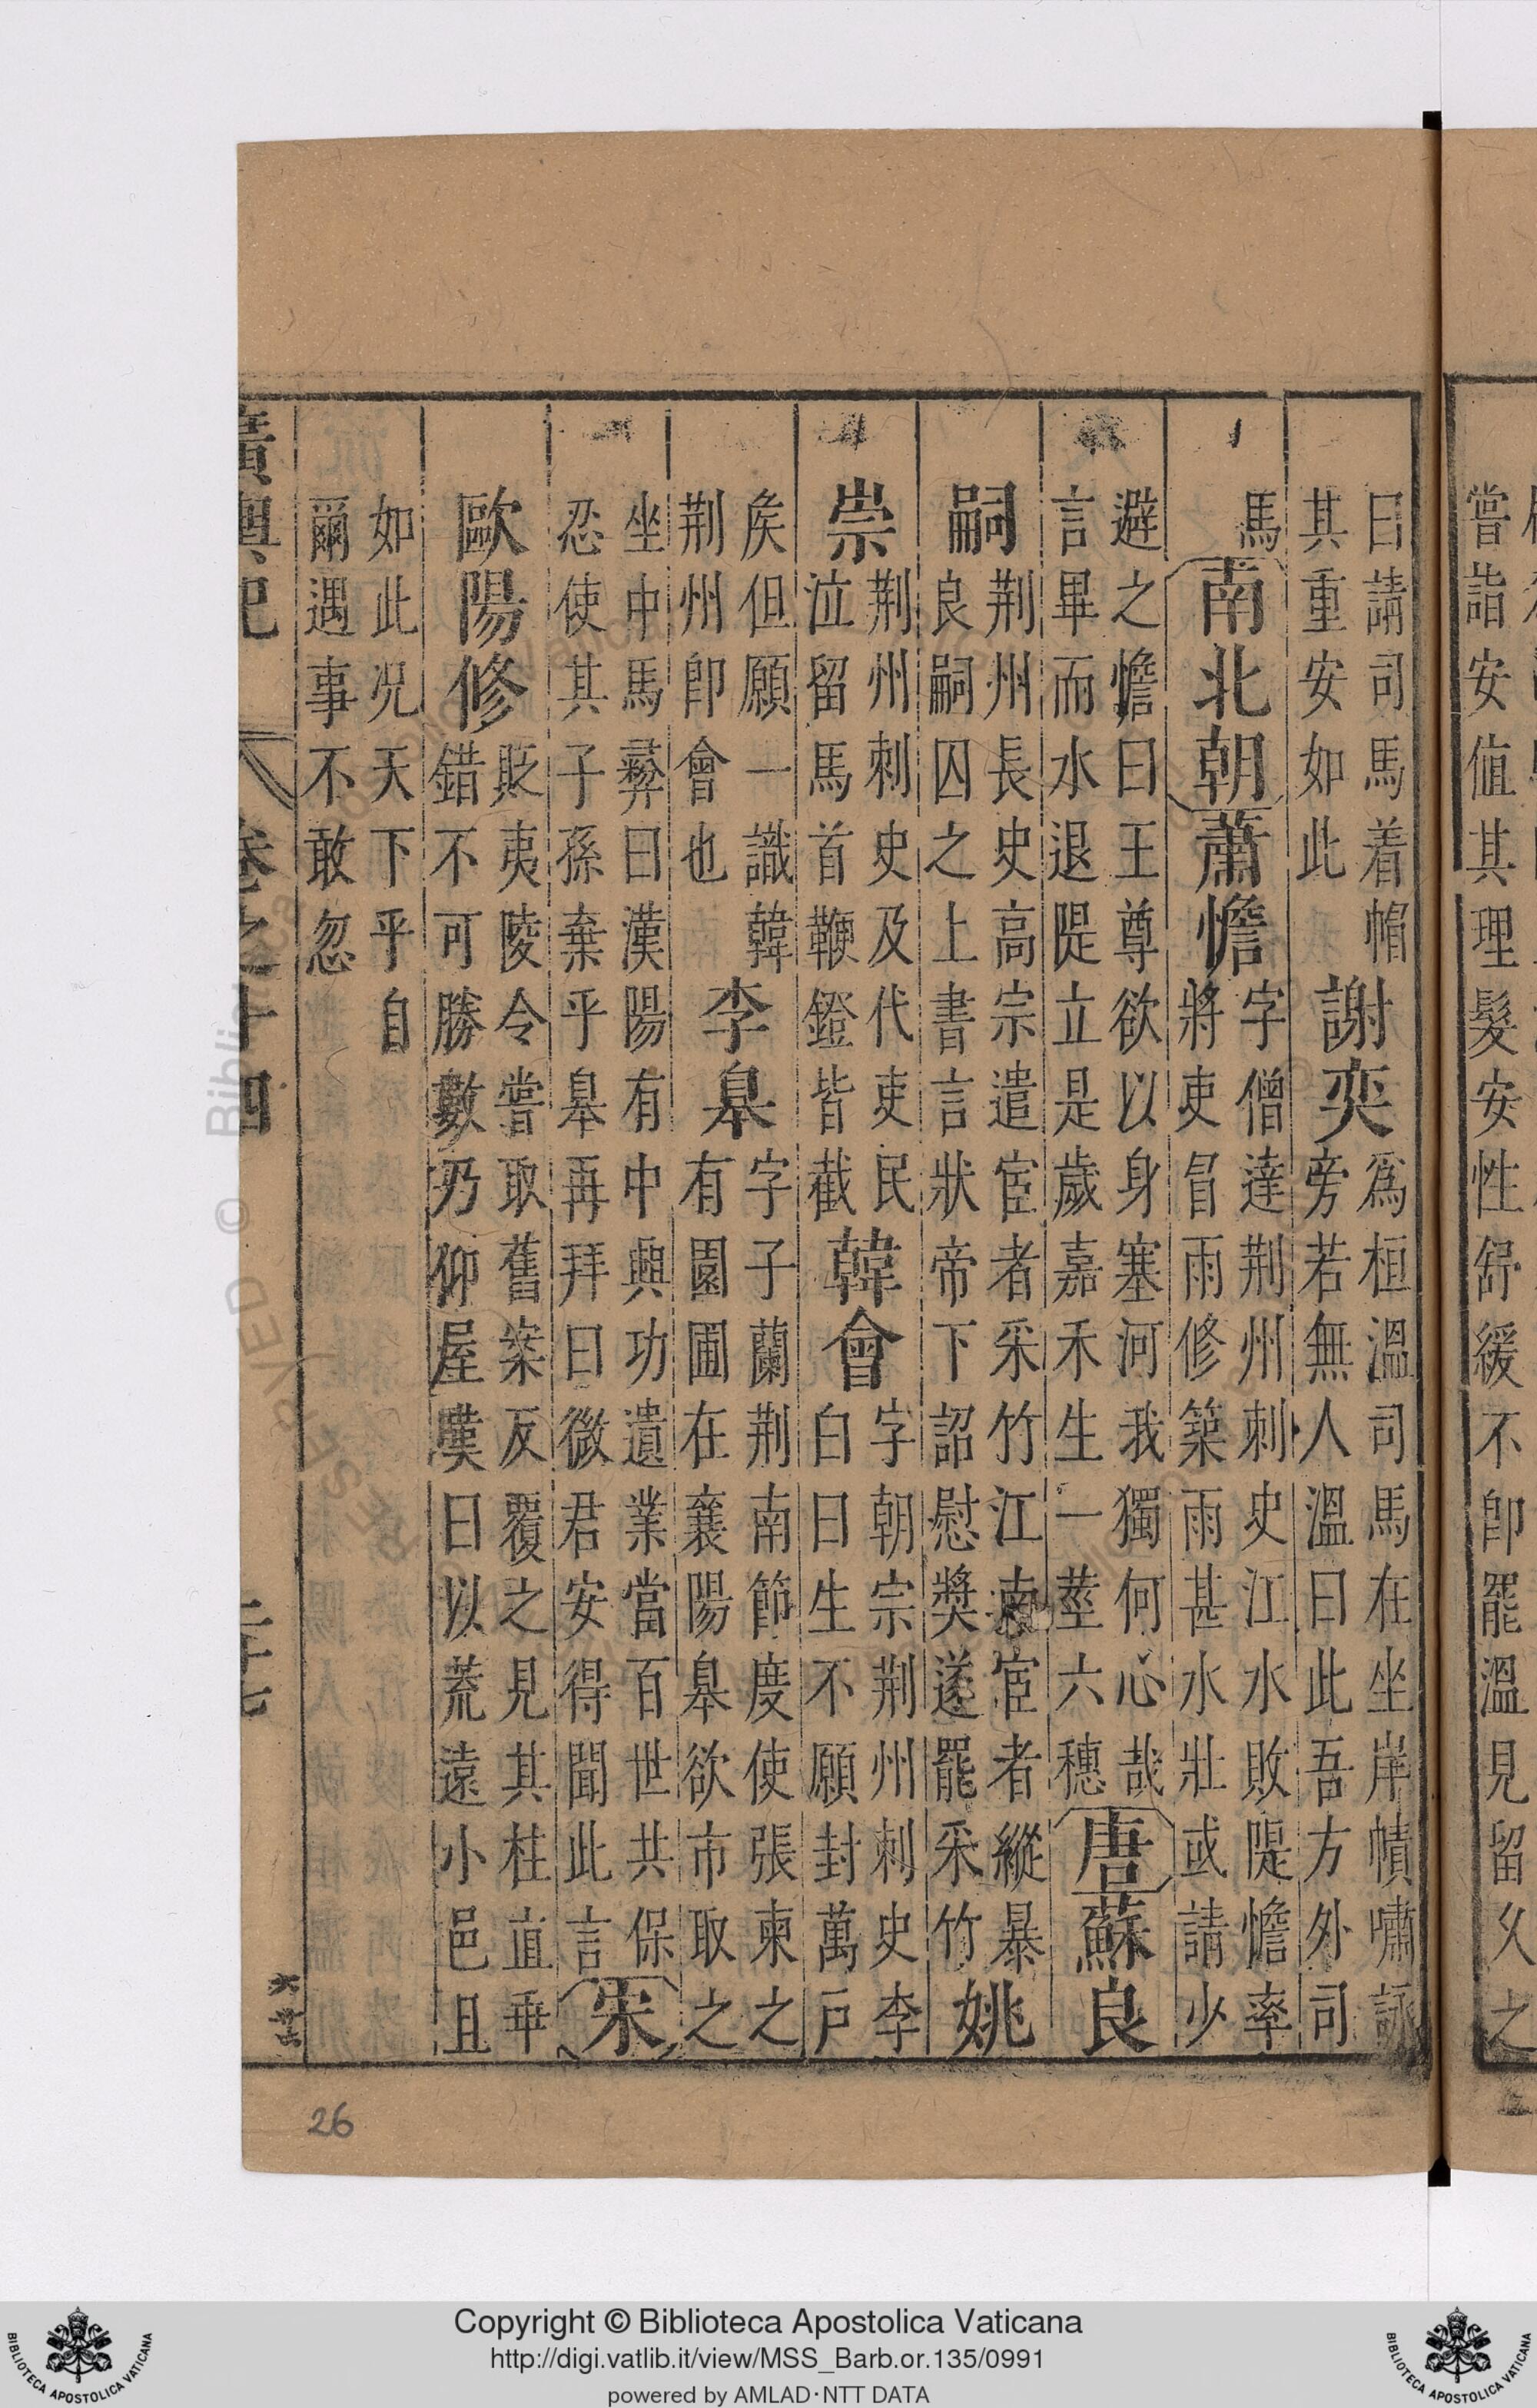 嘗詣安值其理髮安性舒緩不卽罷溫見留乆之
曰請司馬着帽
其重安如此
謝奕
爲桓溫司馬在坐岸幘嘯詠
旁若無人溫曰此吾方外司
馬
南北朝
蕭憺
字僧達荆州刺史江水敗隄憺率
將吏冒雨修築雨甚水壯或請少
避之憺曰王尊欲以身塞河我獨何心哉
言畢而水退隄立是歲嘉禾生一莖六穗
唐
蘇良
嗣
荆州長史高宗遣宦者采竹江南宦者縱暴
良嗣囚之上書言狀帝下詔慰奬遂罷采竹
姚
崇
荆州刺史及代吏民
泣留馬首鞭鐙皆截
韓會
字朝宗荆州刺史李
白曰生不願封萬戶
矦但願一識韓
荆州卽會也
李臯
字子蘭荆南節度使張柬之
有園圃在襄陽臯欲市取之
坐中馬彞曰漢陽有中興功遺業當百世共保
忍使其子孫棄乎臯再拜曰微君安得聞此言
宋
歐陽修
貶夷陵令嘗取舊案反覆之見其枉直乖
錯不可勝數乃仰屋嘆曰以荒遠小邑且
如此况天下乎自
爾遇事不敢忽
廣輿記 卷之十四 二十七
26
RESERVED © Biblioteca Apostolica Vaticana
Copyright © Biblioteca Apostolica Vaticana
http://digi.vatlib.it/view/MSS_Barb.or.135/0991
powered by AMLAD·NTT DATA
BIBLIOTECA APOSTOLICA VATICANA
BIBLIOTECA APOSTOLICA VATICANA